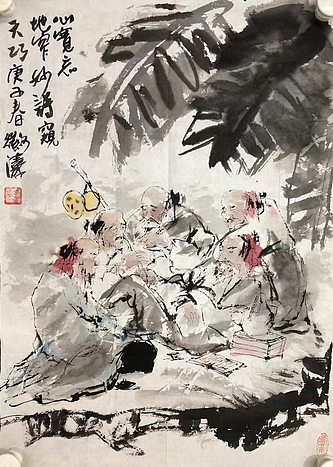 心寬忘
地窄妙詩窺
天巧庚子春